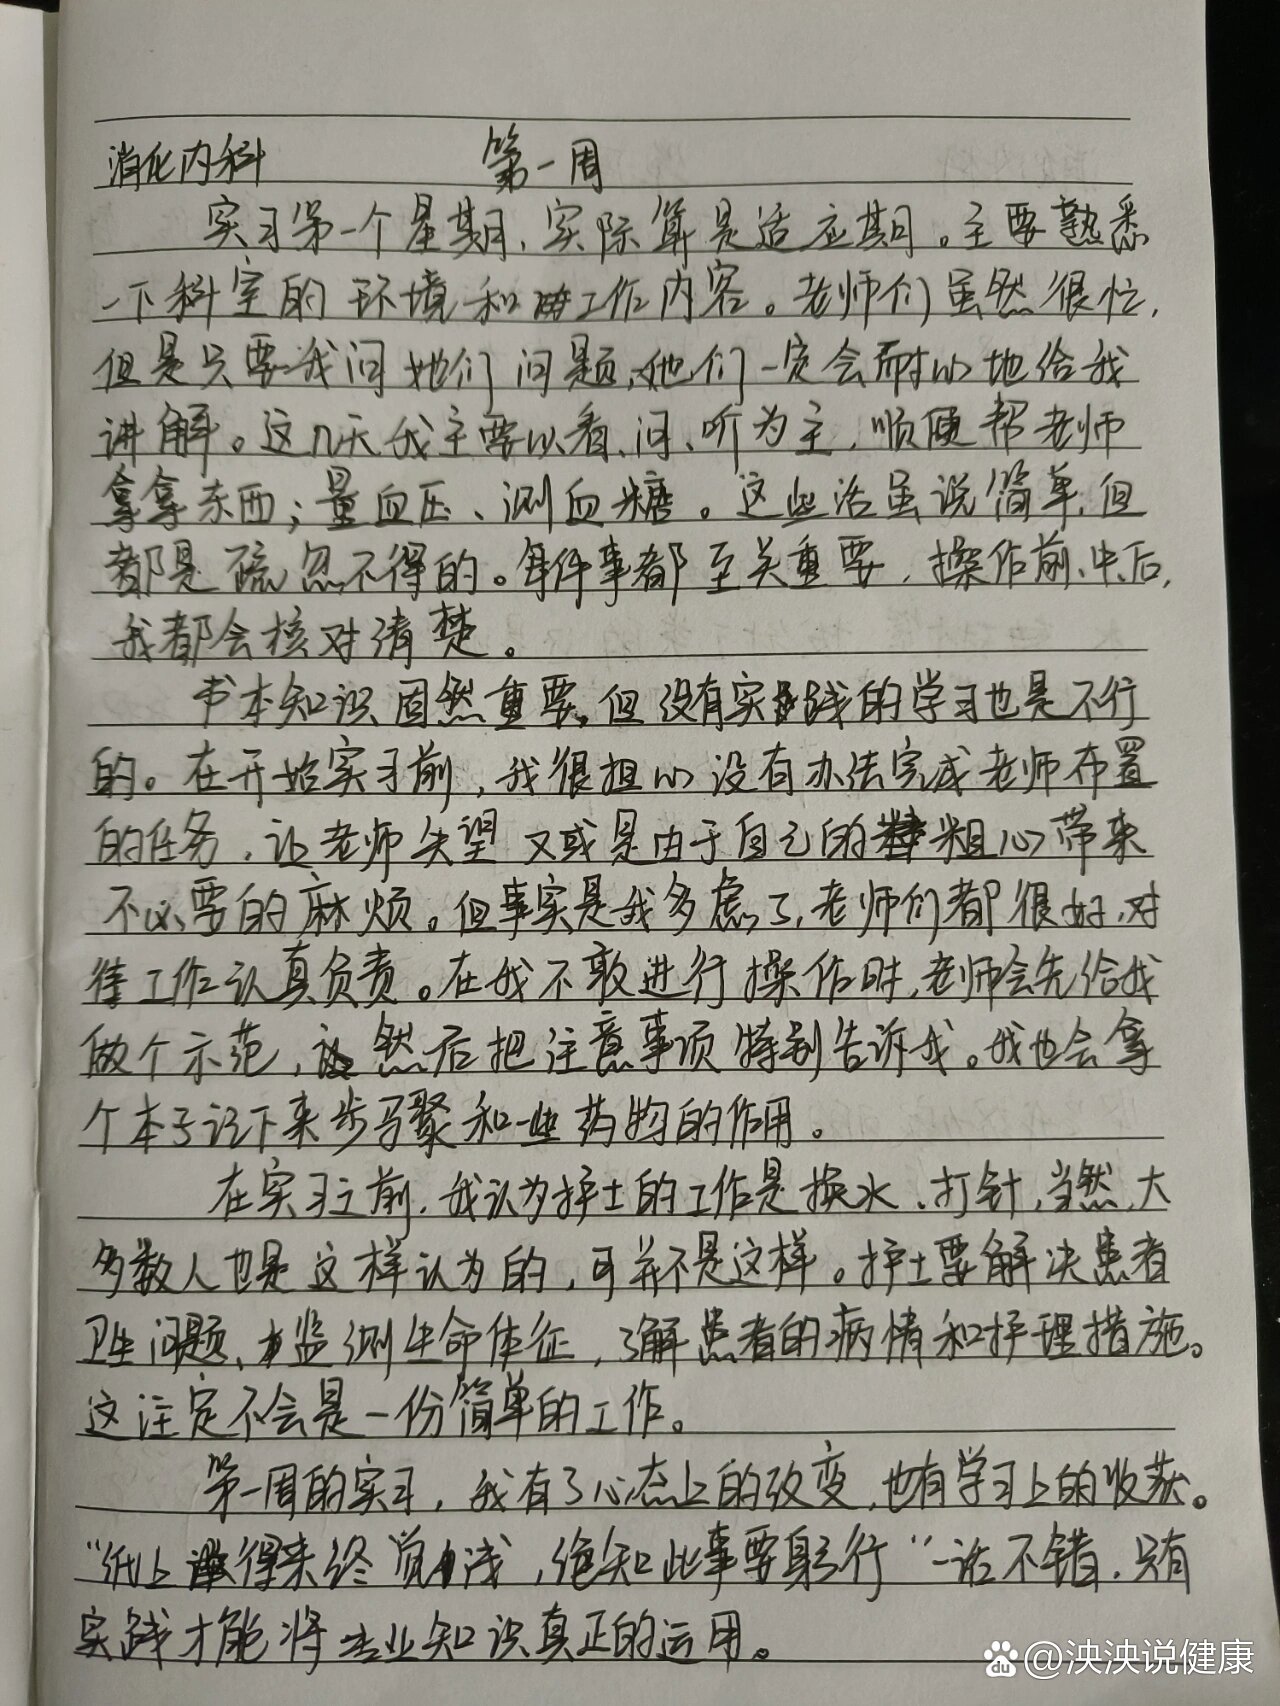 消化内科 第一周
实习第一个星期,实际算是适应期。主要熟悉
一下科室的环境和工作内容。老师们虽然很忙,
但是只要我问她们问题,她们一定会耐心地给我
讲解。这几天我主要以看、问、听为主,顺便帮老师
拿拿东西;量血压、测血糖。这些活虽说简单,但
都是疏忽不得的。每件事都至关重要,操作前、中、后,
我都会核对清楚。
书本知识固然重要,但没有实践的学习也是不行
的。在开始实习前,我很担心没有办法完成老师布置
的任务,让老师失望又或是由于自己的粗心带来
不必要的麻烦。但事实是我多虑了,老师们都很好,对
待工作认真负责。在我不敢进行操作时,老师会先给我
做个示范,然后把注意事项特别告诉我。我也会拿
个本子记下来步骤和一些药物的作用。
在实习之前,我认为护士的工作是换水、打针,当然,大
多数人也是这样认为的,可并不是这样。护士要解决患者
卫生问题、监测生命体征,了解患者的病情和护理措施。
这注定不会是一份简单的工作。
第一周的实习,我有了心态上的改变,也有学习上的收获。
“纸上得来终觉浅,绝知此事要躬行”一话不错,只有
实践才能将专业知识真正的运用。
@泱泱说健康